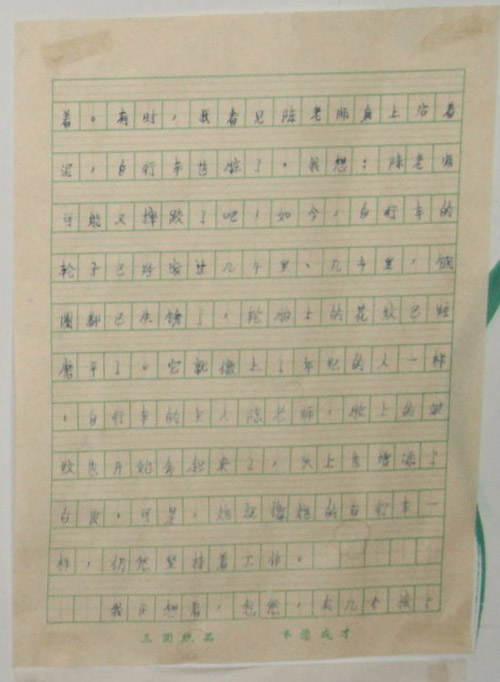 着。有时，我看见陈老师身上沾着
泥，自行车也脏了。我想：陈老师
可能又摔跤了吧！如今，自行车的
轮子已经滚过几千里、几千里，钢
圈都已生锈了，轮胎上的花纹已经
磨平了。它就像上了年纪的人一样
。自行车的主人陈老师，脸上的皱
纹也开始多起来了，头上也增添了
白发。可是，她就像她的自行车一
样，仍然坚持着工作。
我正想着，忽然，有几个孩子